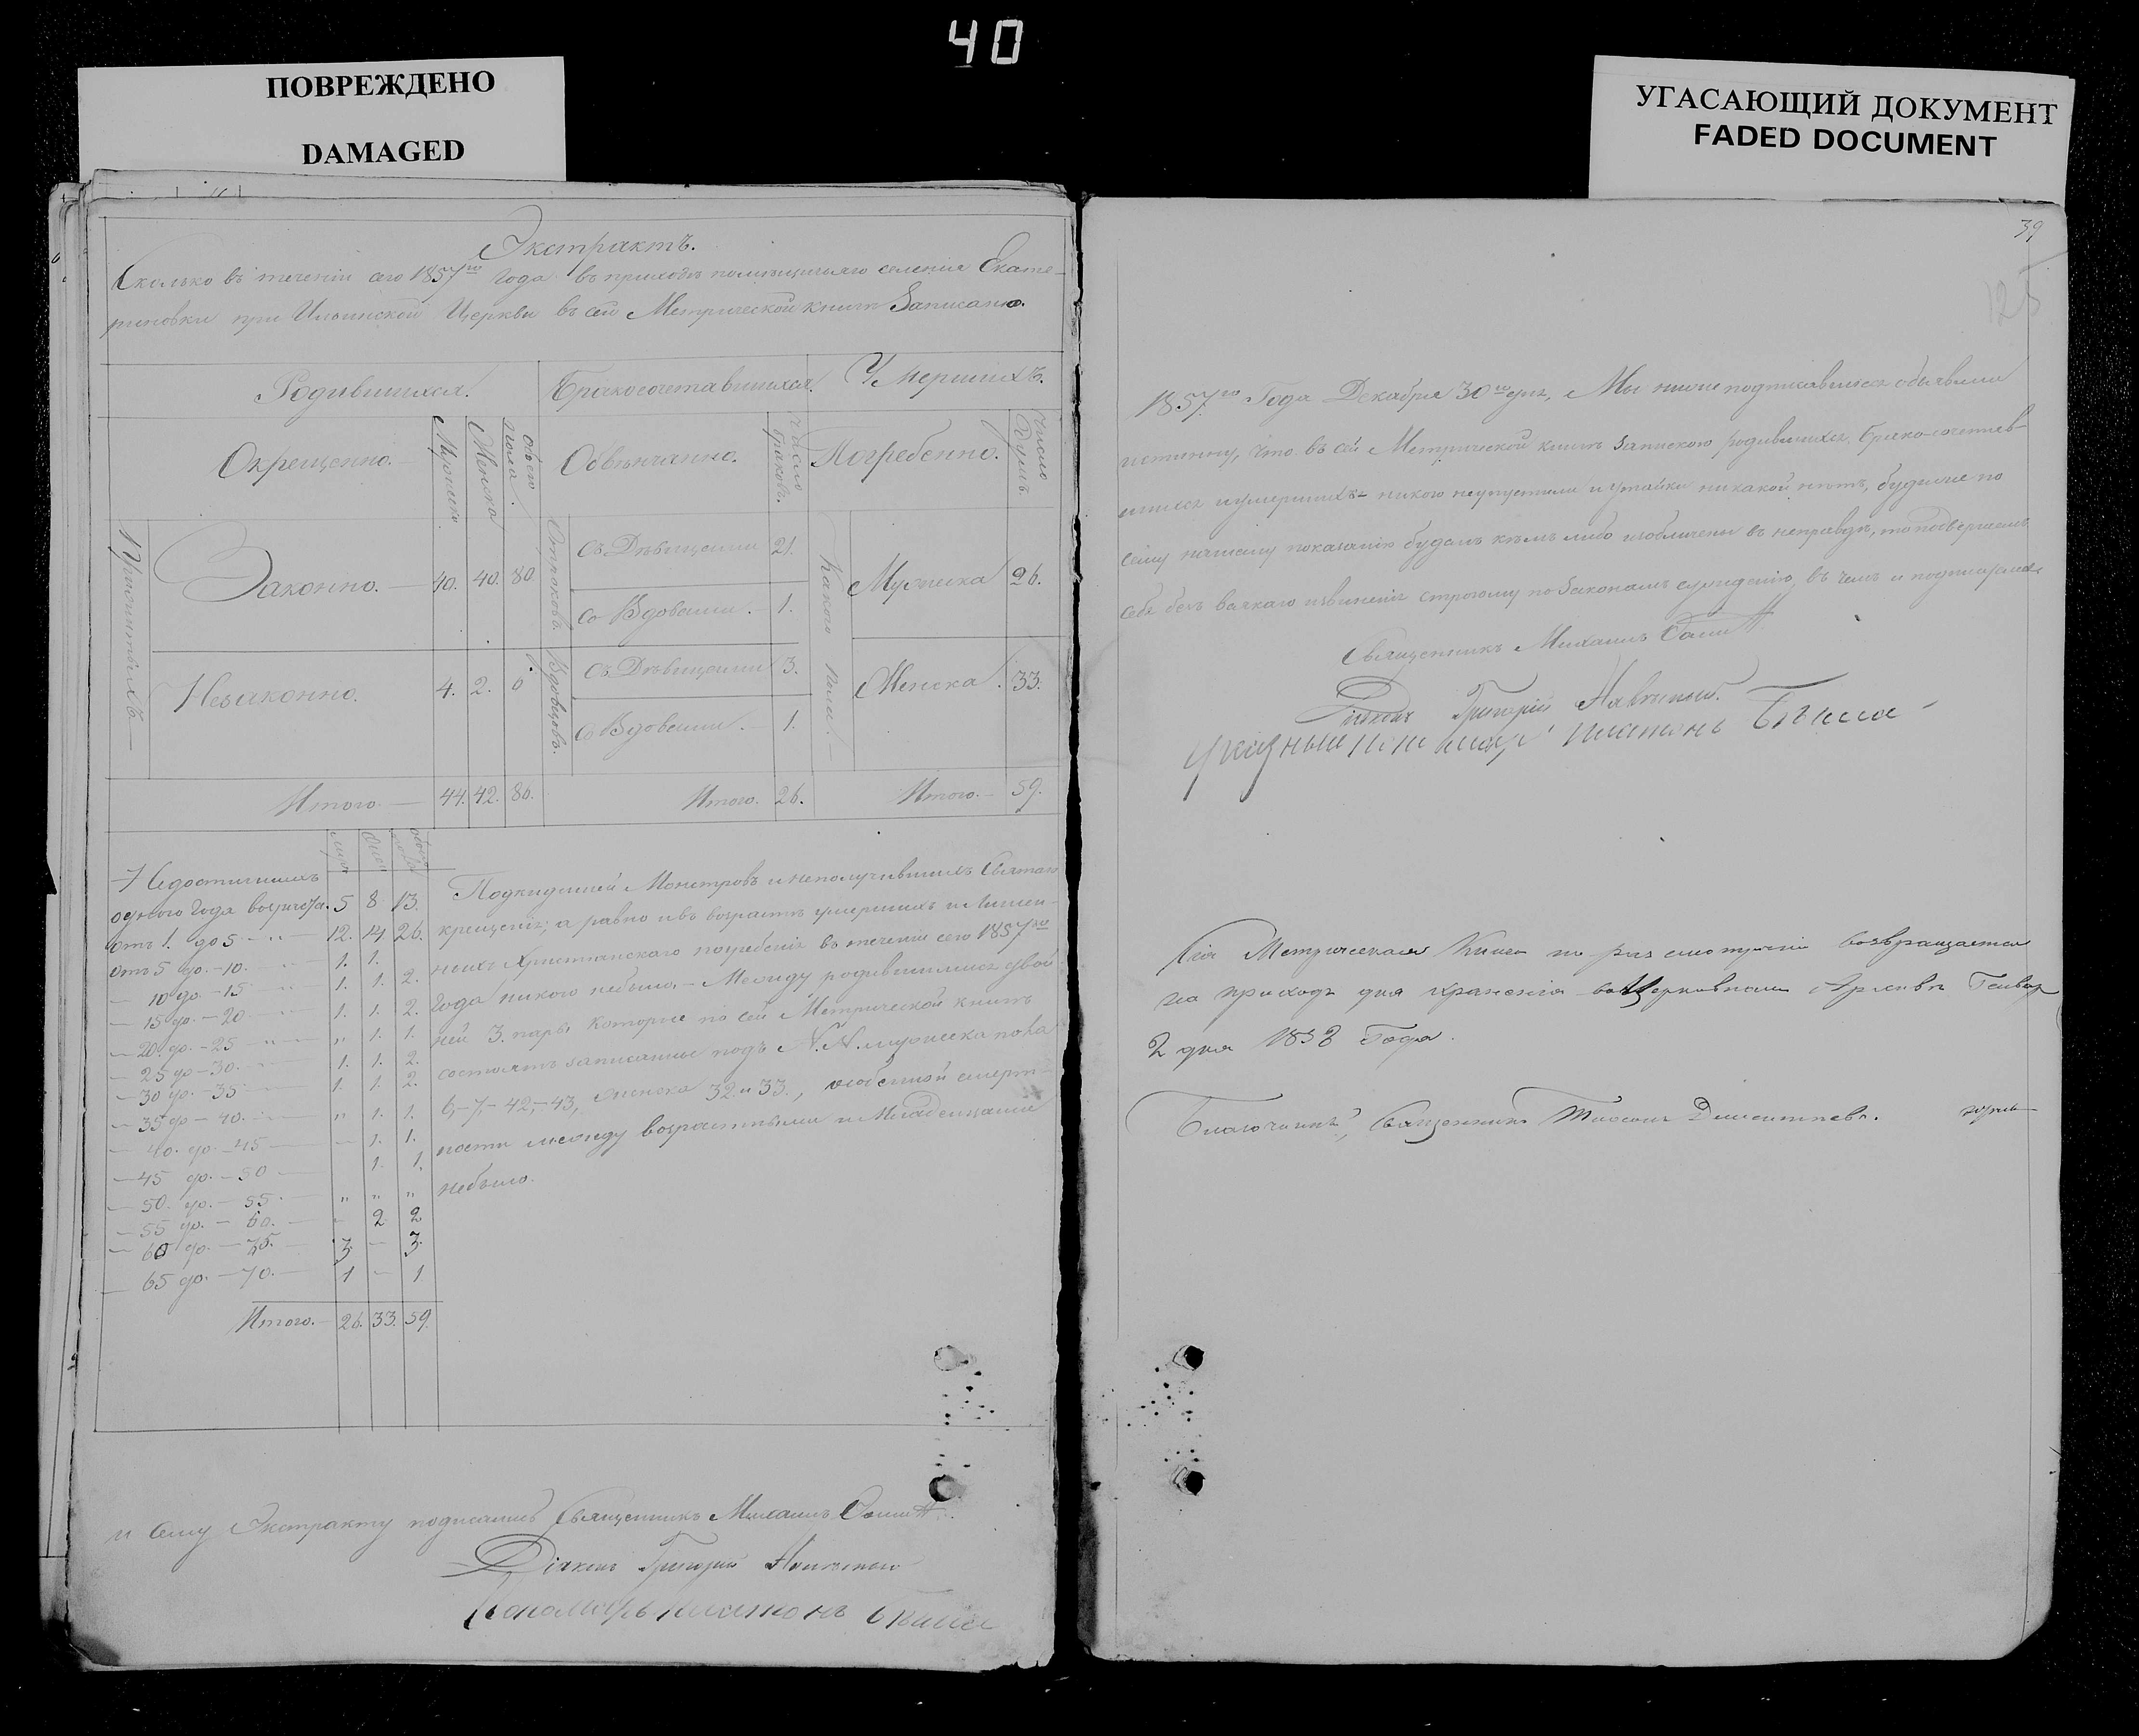 40
ПОВРЕЖДЕНО
DAMAGED
УГАСАЮЩИЙ ДОКУМЕНТ
FADED DOCUMENT
Экстрактъ.
Сколько въ теченіи сего 1857го года въ приходѣ помѣщичьяго селенія Екате-
риновки при Ильинской Церкви въ сей Метрической книгѣ Записано.
Родившихся. Бракосочетавшихся. Умершихъ.
Окрещенно. Мужеска Женска Обоего пола. Обвѣнчанно. Число браковъ. Погребенно. Число душъ.
Законно. 40. 40. 80. Отроковъ. Съ Дѣвицами 21. Какого пола. Мужеска 26.
Со Вдовами. 1.
Незаконно. 4. 2. 6 Вдовцовъ. Съ Дѣвицами 3. Женска. 33.
Со Вдовами. 1.
Итого. 44. 42. 86. Итого. 26. Итого. 59.
Недостигшихъ
одного года возраста. 5 8 13.
отъ 1. до 5 12. 14 26.
отъ 5 до 10. 1. 1.
10 до 15 1. 1. 2.
15 до 20 1. 1. 2.
20 до 25 " 1. 1.
25 до 30. 1. 1. 2.
30 до 35 1. 1. 2.
35 до 40. " 1. 1.
40. до 45 1. 1.
45 до 50 1. 1.
50. до 55. " " "
55 до 60. 2 2
60 до 3 3.
65 до 70. 1 1
Итого. 26. 33. 59.
Подкидышей Монстровъ и неполучившихъ Святаго
крещенія; а равно и въ возрастѣ умершихъ и лишен-
ныхъ Христіанскаго погребенія въ теченіе сего 1857го
года никого небыло. Между родившимися двой
ней 3. пары которые по сей Метрической книгѣ
состоятъ записанные подъ N.N. мужеска пола
6,-7,-42,-43, женска 32 и 33., особенной смерт-
ности между возрастными и Младенцами
небыло.
и сему Экстракту подписались Священникъ Михаилъ
Діяконъ Григорій
Пономарь
39
125
1857го Года Декабря 30го дня, Мы нижеподписавшіеся объявили
истинну, что въ сей Метрической книгѣ Запискою родившихся, Брако-сочетав-
шихся и умершихъ никого неупустили и утайки никакой нѣтъ, будеже по
сему нашему показанію будемъ кѣмъ либо изобличены въ неправдѣ, то подвергаемъ
себя безъ всякаго извиненія строгому по Законамъ сужденію, въ чемъ и подписуемся
Священникъ Михаилъ
Діяконъ Григорій
Указный Пономарь
Сія Метрическая Книга по разсмотреніи возвращается
на приходъ для храненія въ Церковномъ Архивѣ Генвар
2 дня 1858 Года.
Благочинный, Священникъ